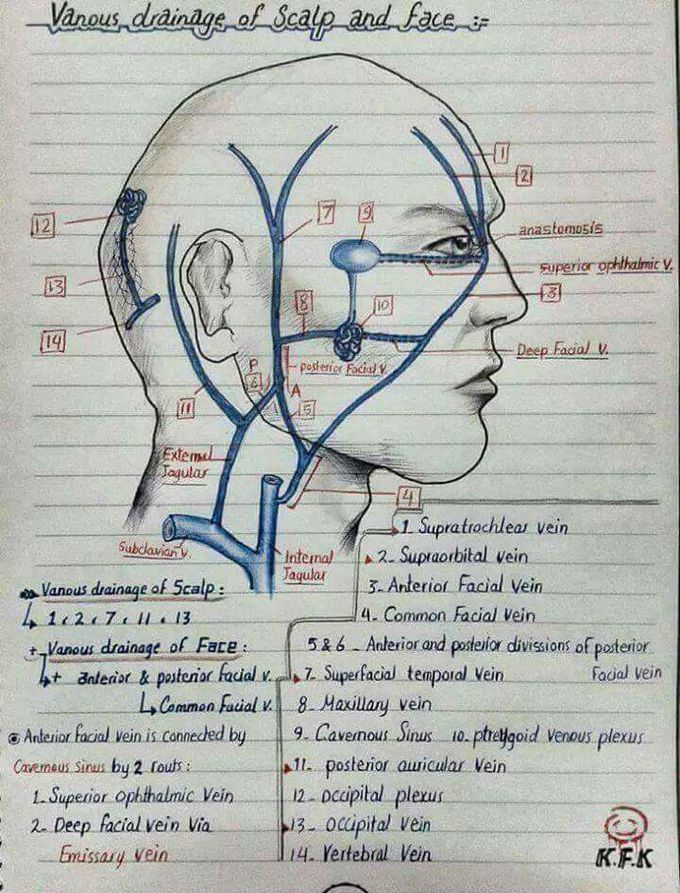 Vanous drainage of Scalp and face :=
1
2
7
9
12
anastomosis
superior ophthalmic V.
13
3
8
10
14
Deep Facial V.
posterior Facial V.
P
6
A
11
5
External
Jagular
4
Subclavian V.
Internal
Jagular
Vanous drainage of Scalp:
1, 2, 7, 11, 13
+ Vanous drainage of Face:
+ Anterior & posterior facial v.
Common Facial V.
Anterior facial vein is connected by
Cavernous sinus by 2 routs:
1- Superior Ophthalmic Vein
2- Deep facial vein via
Emissary vein
1. Supratrochlear vein
2- Supraorbital vein
3- Anterior Facial Vein
4- Common Facial Vein
5 & 6 - Anterior and posterior divissions of posterior
Facial vein
7- Superfacial temporal Vein
8- Maxillary vein
9- Cavernous Sinus 10. ptreygoid venous plexus
11- posterior auricular Vein
12- occipital plexus
13- occipital Vein
14- Vertebral Vein
K.F.K